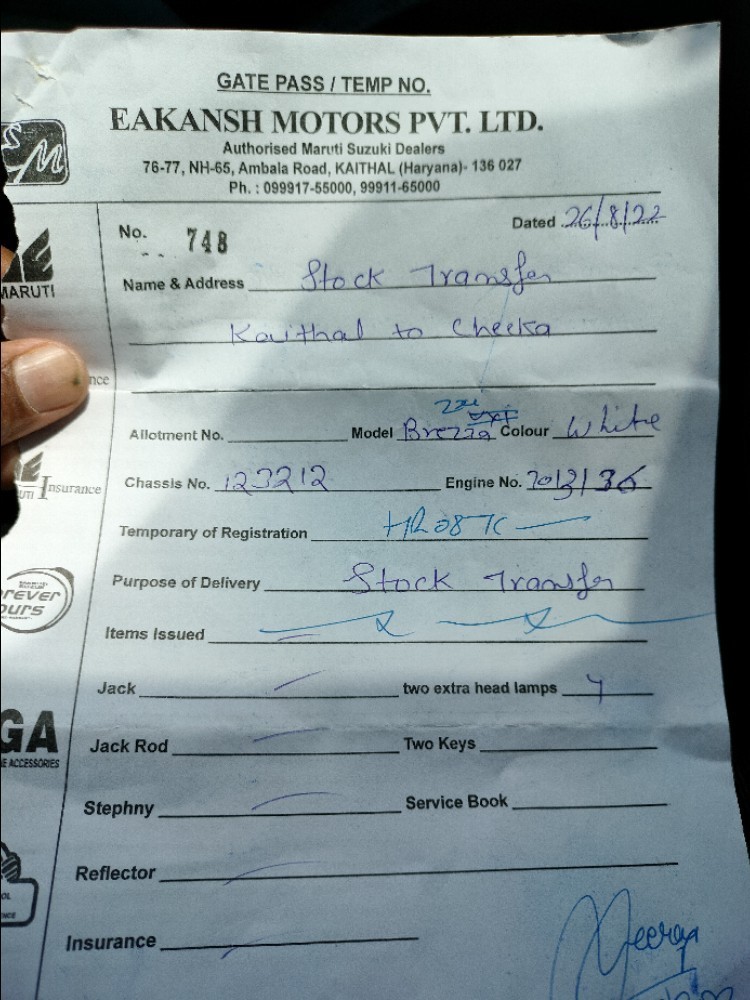 GATE PASS / TEMP NO.
EAKANSH MOTORS PVT. LTD.
Authorised Maruti Suzuki Dealers
76-77, NH-65, Ambala Road, KAITHAL (Haryana)- 136 027
Ph. : 099917-55000, 99911-65000
SM
No. 748 Dated 26/8/22
MARUTI
Name & Address Stock Transfer
Kaithal to Cheeka
nce
Allotment No. Model Brezza Colour White
Chassis No. 123212 Engine No.
UTI Insurance
Temporary of Registration
Purpose of Delivery Stock Transfer
rever
ours
Items Issued
Jack two extra head lamps
GA
E ACCESSORIES
Jack Rod Two Keys
Stephny Service Book
Reflector
OL
ENCE
Insurance